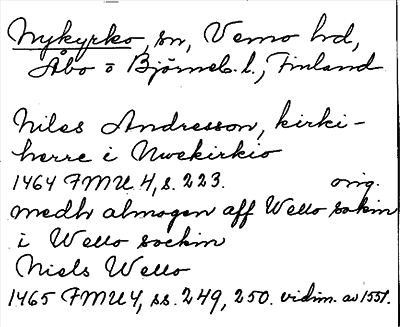 Nykyrko, sn, Vemo hd,
Åbo o Björneb. l., Finland
Niles Andresson, kirki-
herre i Nwekirkio
1464 FMU 4, s. 223. orig.
medh almogen aff Wello sokin
i Wello sockin
Niels Wello
1465 FMU 4, ss. 249, 250. vidim. av 1551.